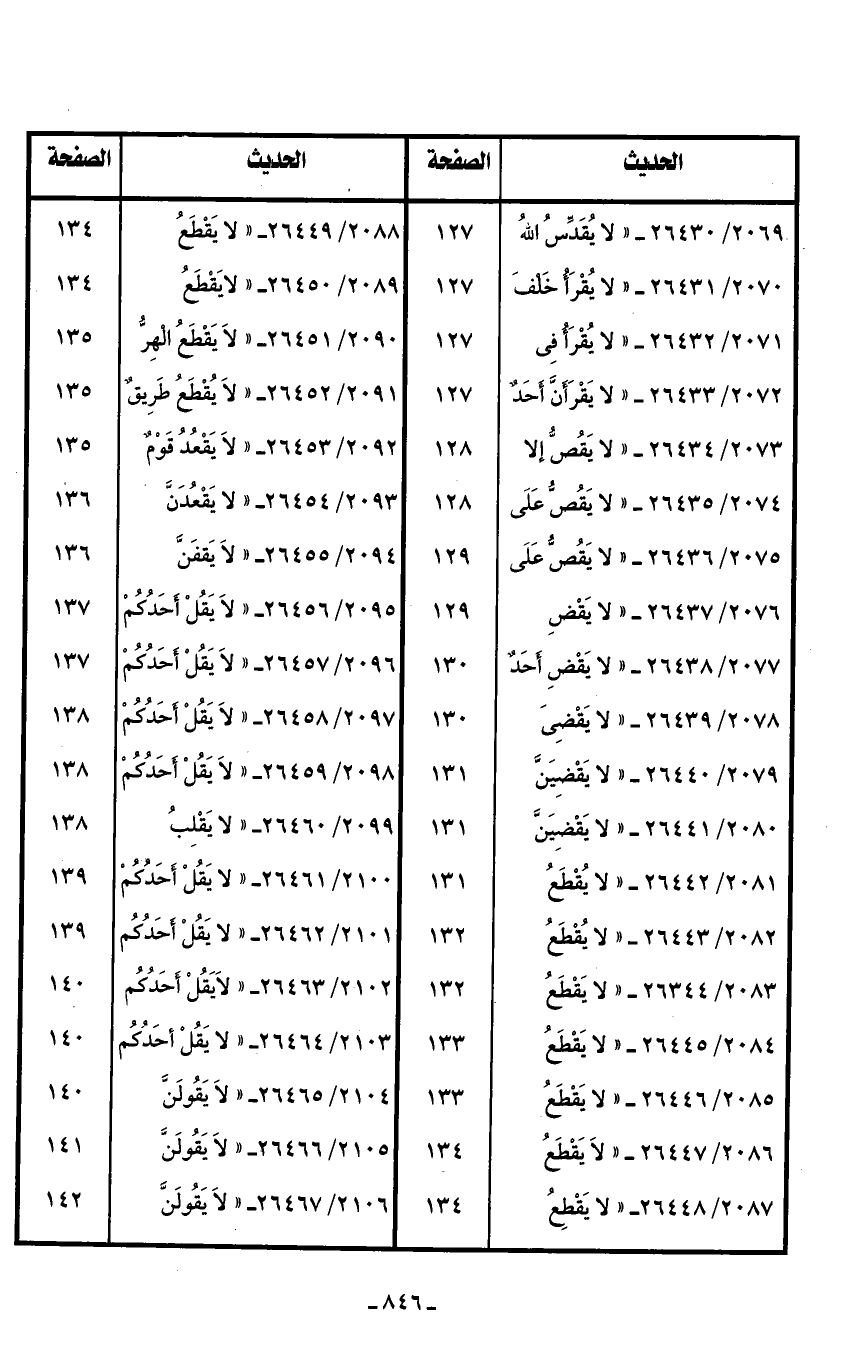 الحديث الصفحة الحديث الصفحة
٢٠٦٩/ ٢٦٤٣٠ ـ « لا يُقَدِّسُ اللهُ ١٢٧ ٢٠٨٨/ ٢٦٤٤٩ـ « لا يَقْطَعُ ١٣٤
٢٠٧٠/ ٢٦٤٣١ ـ « لا يُقْرَأُ خَلْفَ ١٢٧ ٢٠٨٩/ ٢٦٤٥٠ـ « لايَقْطَعُ ١٣٤
٢٠٧١/ ٢٦٤٣٢ ـ « لا يُقْرَأُ فِى ١٢٧ ٢٠٩٠/ ٢٦٤٥١ـ « لاَ يَقْطَعُ الْهِرُّ ١٣٥
٢٠٧٢/ ٢٦٤٣٣ ـ « لا يَقْرَأَنَّ أَحَدٌ ١٢٧ ٢٠٩١/ ٢٦٤٥٢ـ « لاَ يُقْطَعُ طَرِيقٌ ١٣٥
٢٠٧٣/ ٢٦٤٣٤ ـ « لا يَقُصُّ إلا ١٢٨ ٢٠٩٢/ ٢٦٤٥٣ـ « لاَ يَقْعُدُ قَوْمٌ ١٣٥
٢٠٧٤/ ٢٦٤٣٥ ـ « لا يَقُصُّ عَلَى ١٢٨ ٢٠٩٣/ ٢٦٤٥٤ـ « لا يَقْعُدَنَّ ١٣٦
٢٠٧٥/ ٢٦٤٣٦ ـ « لا يَقُصُّ عَلَى ١٢٩ ٢٠٩٤/ ٢٦٤٥٥ـ « لاَ يَقفَنَّ ١٣٦
٢٠٧٦/ ٢٦٤٣٧ ـ « لا يَقْضِ ١٢٩ ٢٠٩٥/ ٢٦٤٥٦ـ « لاَ يَقُلْ أَحَدُكُمْ ١٣٧
٢٠٧٧/ ٢٦٤٣٨ ـ « لا يَقْضِ أَحَدٌ ١٣٠ ٢٠٩٦/ ٢٦٤٥٧ـ « لاَ يَقُلْ أَحَدُكُمْ ١٣٧
٢٠٧٨/ ٢٦٤٣٩ ـ « لا يَقْضِىَ ١٣٠ ٢٠٩٧/ ٢٦٤٥٨ـ « لاَ يَقُلْ أَحَدُكُمْ ١٣٨
٢٠٧٩/ ٢٦٤٤٠ ـ « لا يَقْضِيَنَّ ١٣١ ٢٠٩٨/ ٢٦٤٥٩ـ « لاَ يَقُلْ أَحَدُكُمْ ١٣٨
٢٠٨٠/ ٢٦٤٤١ ـ « لا يَقْضِيَنَّ ١٣١ ٢٠٩٩/ ٢٦٤٦٠ـ « لا يَقْلِبُ ١٣٨
٢٠٨١/ ٢٦٤٤٢ ـ « لا يُقْطَعُ ١٣١ ٢١٠٠/ ٢٦٤٦١ـ « لا يَقُلْ أَحَدُكُمْ ١٣٩
٢٠٨٢/ ٢٦٤٤٣ ـ « لا يُقْطَعُ ١٣٢ ٢١٠١/ ٢٦٤٦٢ـ « لا يَقُلْ أَحَدُكُم ١٣٩
٢٠٨٣/ ٢٦٣٤٤ ـ « لا يَقْطَعُ ١٣٢ ٢١٠٢/ ٢٦٤٦٣ـ « لاَيَقُلْ أَحَدُكُم ١٤٠
٢٠٨٤/ ٢٦٤٤٥ ـ « لا يَقْطَعُ ١٣٣ ٢١٠٣/ ٢٦٤٦٤ـ « لا يَقُلْ أحَدُكُم ١٤٠
٢٠٨٥/ ٢٦٤٤٦ ـ « لا يَقْطَعُ ١٣٣ ٢١٠٤/ ٢٦٤٦٥ـ « لاَ يَقُولَنَّ ١٤٠
٢٠٨٦/ ٢٦٤٤٧ ـ « لاَ يَقْطَعُ ١٣٤ ٢١٠٥/ ٢٦٤٦٦ـ « لاَ يَقُولَنَّ ١٤١
٢٠٨٧/ ٢٦٤٤٨ـ « لا يَقْطعُ ١٣٤ ٢١٠٦/ ٢٦٤٦٧ـ « لاَ يَقُولَنَّ ١٤٢
ـ ٨٤٦ ـ